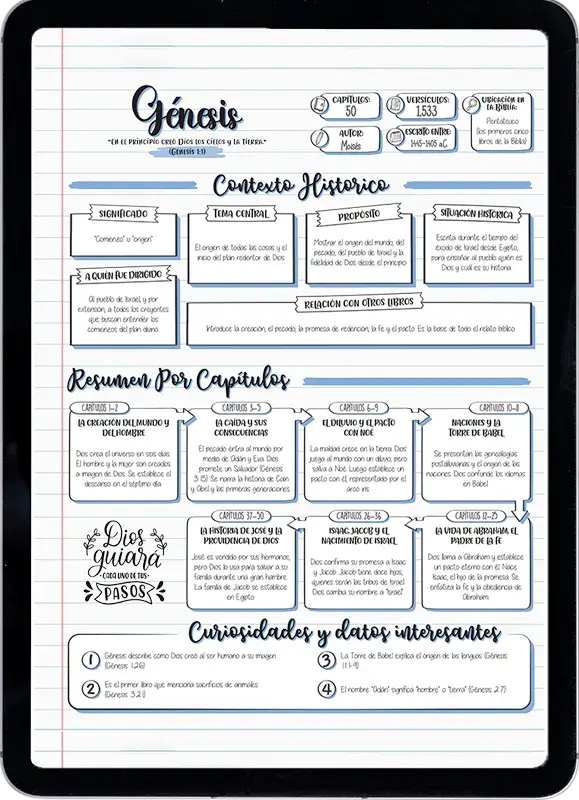 Génesis
"En el principio creó Dios los cielos y la tierra."
(Génesis 1:1)
Capítulos:
50
Versículos:
1,533
Ubicación en
la Biblia:
Pentateuco
(los primeros cinco
libros de la Biblia)
Autor:
Moisés
Escrito entre:
1445-1405 a.C
Contexto Historico
Significado
"Comienzo" u "origen"
Tema Central
El origen de todas las cosas y el
inicio del plan redentor de Dios
Propósito
Mostrar el origen del mundo, del
pecado, del pueblo de Israel y la
fidelidad de Dios desde el principio
Situación Histórica
Escrita durante el tiempo del
éxodo de Israel desde Egipto,
para enseñar al pueblo quién es
Dios y cuál es su historia
A quién fue dirigido
Al pueblo de Israel, y por
extensión, a todos los creyentes
que buscan entender los
comienzos del plan divino
Relación con otros libros
Introduce la creación, el pecado, la promesa de redención, la fe y el pacto. Es la base de todo el relato bíblico
Resumen Por Capítulos
Capítulos 1-2
La creación del mundo y
del hombre
Dios crea el universo en seis días.
El hombre y la mujer son creados
a imagen de Dios. Se establece el
descanso en el séptimo día
Capítulos 3-5
La caída y sus
consecuencias
El pecado entra al mundo por
medio de Adán y Eva. Dios
promete un Salvador (Génesis
3:15). Se narra la historia de Caín
y Abel y las primeras generaciones
Capítulos 6-9
El diluvio y el pacto
con Noé
La maldad crece en la tierra. Dios
juzga al mundo con un diluvio, pero
salva a Noé. Luego establece un
pacto con el representado por el
arco iris
Capítulos 10-11
Naciones y la
Torre de Babel
Se presentan las genealogías
postdiluvianas y el origen de las
naciones. Dios confunde los idiomas
en Babel
Dios
guiará
cada uno de tus
pasos
Capítulos 37-50
La historia de José y la
providencia de Dios
José es vendido por sus hermanos,
pero Dios lo usa para salvar a su
familia durante una gran hambre.
La familia de Jacob se establece
en Egipto
Capítulos 26-36
Isaac, Jacob y el
nacimiento de Israel
Dios confirma su promesa a Isaac
y Jacob. Jacob tiene doce hijos,
quienes serán las tribus de Israel.
Dios cambia su nombre a "Israel"
Capítulos 12-25
La vida de Abraham, el
padre de la fe
Dios llama a Abraham y establece
un pacto eterno con él. Nace
Isaac, el hijo de la promesa. Se
enfatiza la fe y la obediencia de
Abraham
Curiosidades y datos interesantes
1 Génesis describe cómo Dios creó al ser humano a su imagen
(Génesis 1:26)
2 Es el primer libro que menciona sacrificios de animales
(Génesis 3:21)
3 La Torre de Babel explica el origen de las lenguas (Génesis
11:1-9)
4 El nombre "Adán" significa "hombre" o "tierra" (Génesis 2:7)